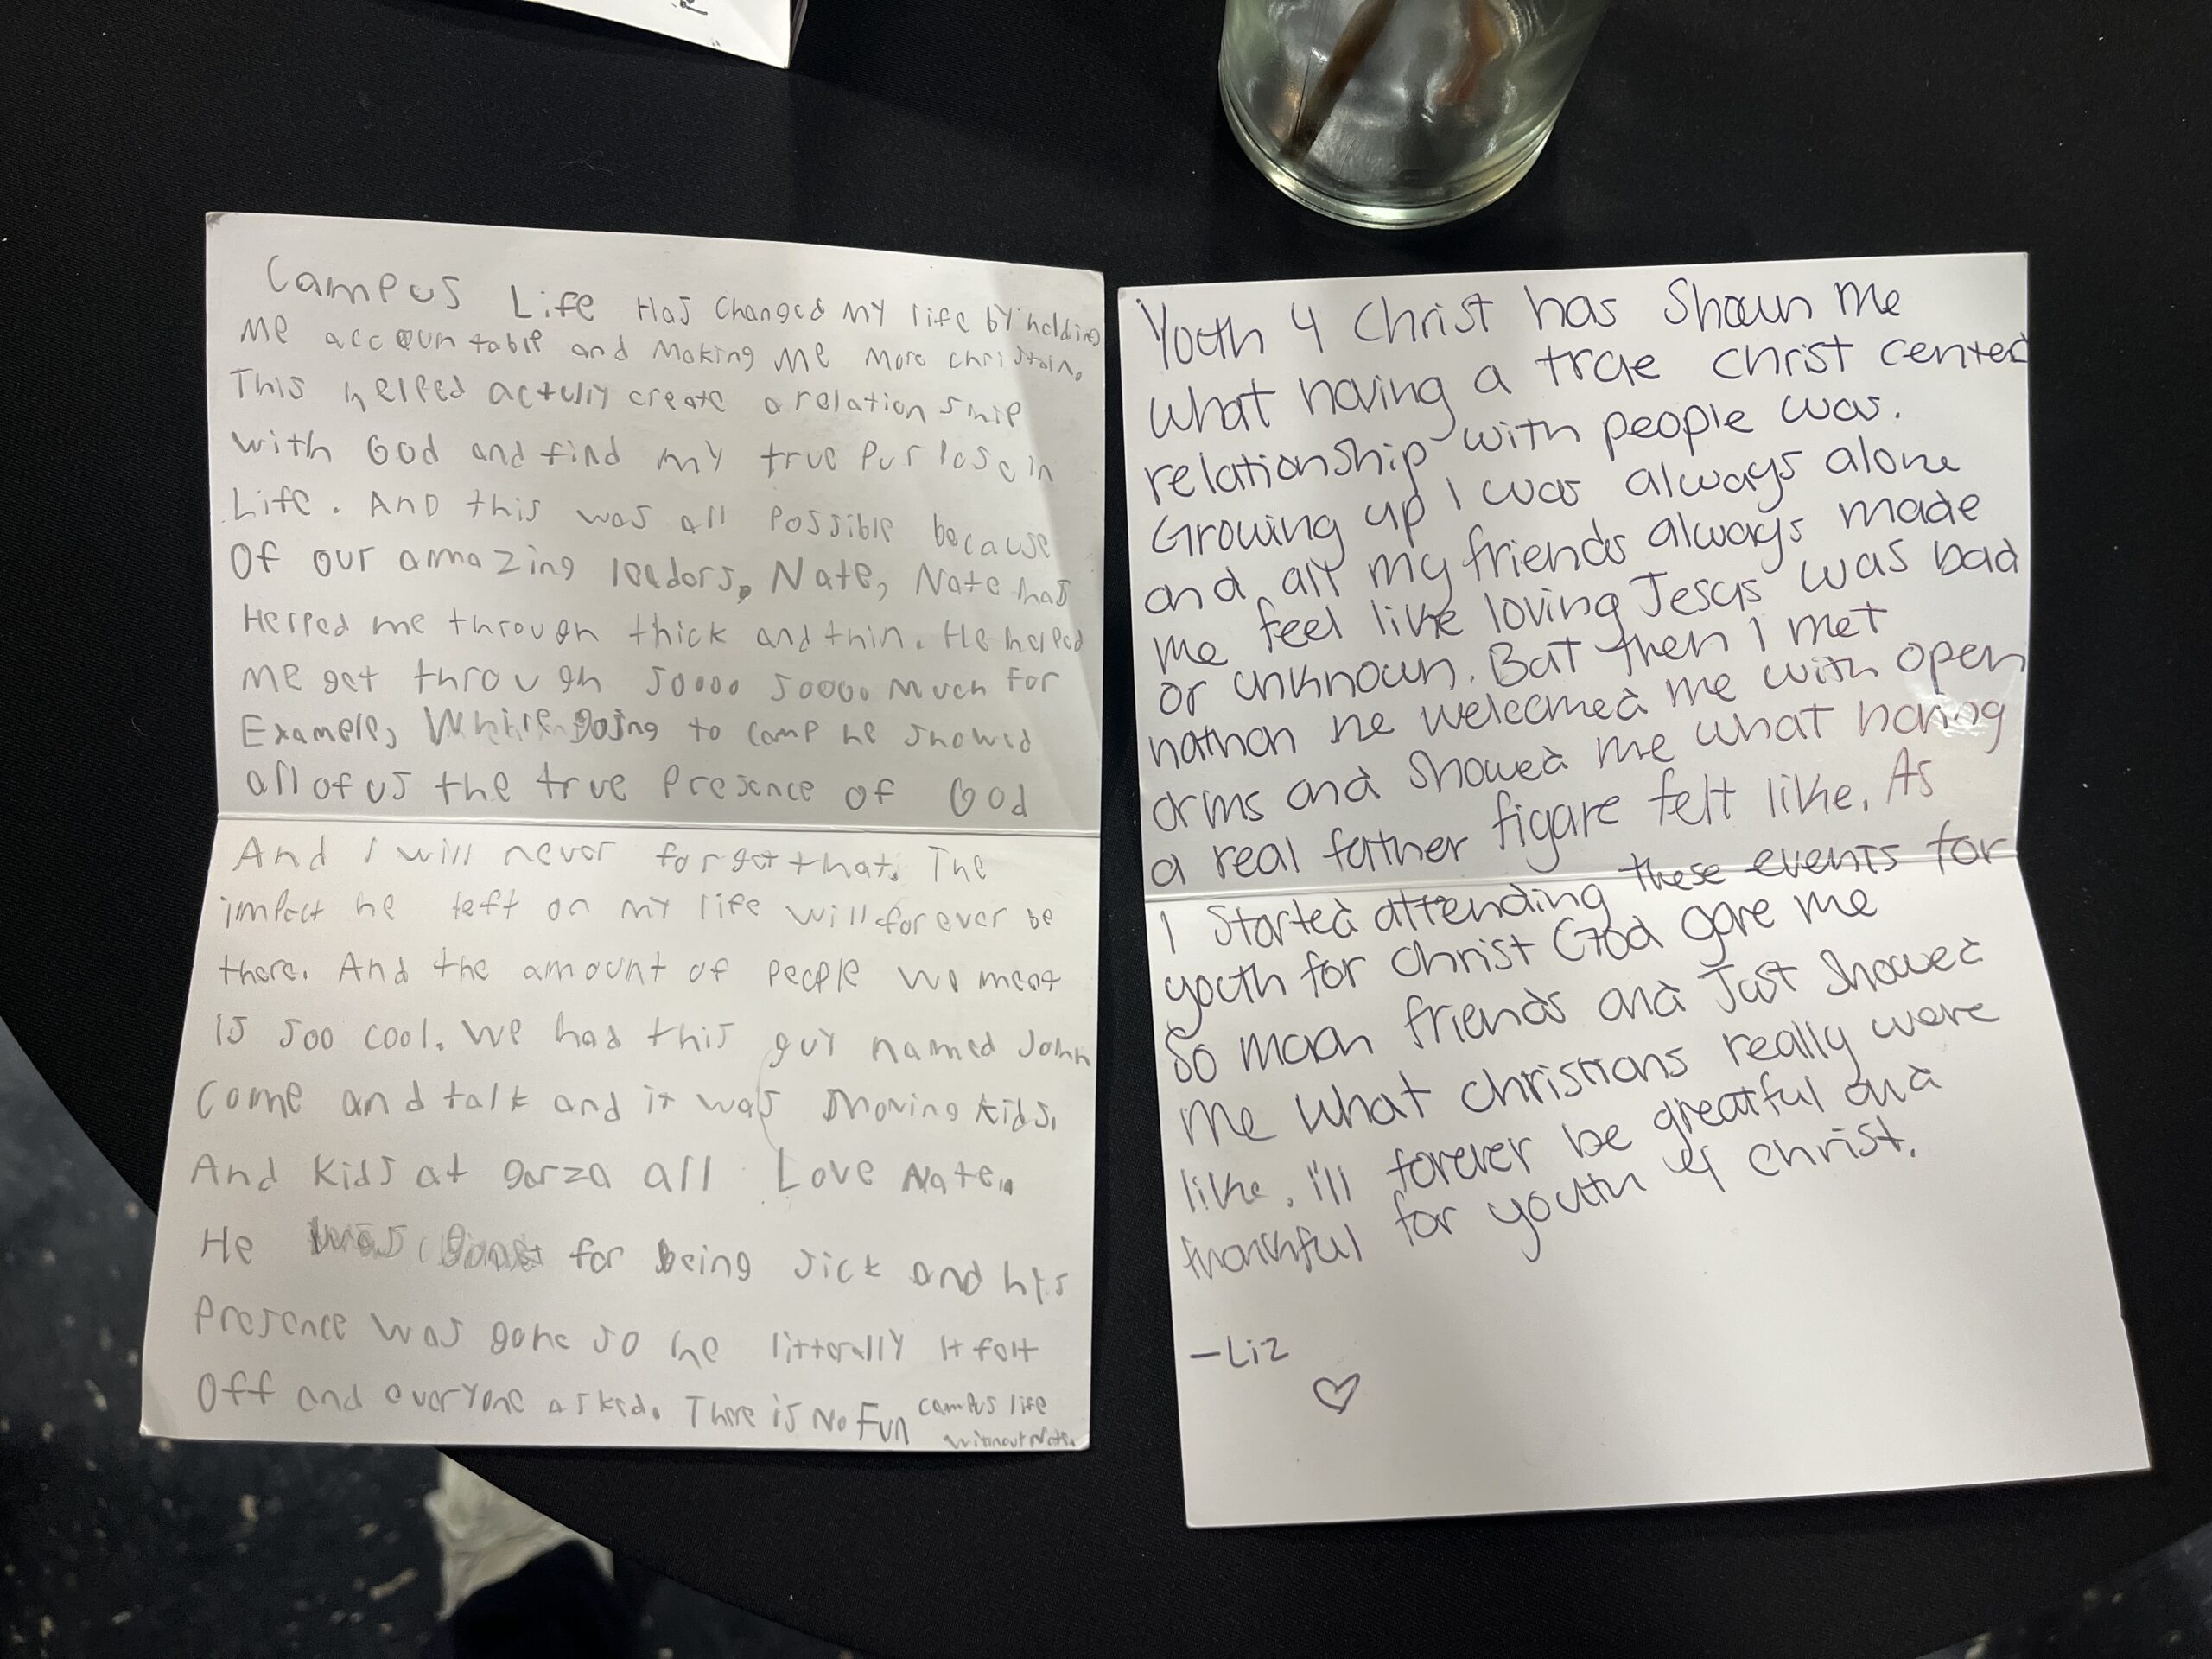 Campus Life Has Changed My life by holding
Me accountable and Making Me More christain.
This helped actully create a relationship
with God and find my true Purpose in
Life. And this was all Possible because
Of our amazing leaders, Nate, Nate has
Helped me through thick and thin. He helped
me get through soooo soooo Much For
Example, While going to camp he showed
all of us the true Presence of God
And I will never forget that. The
impact he left on my life will forever be
there. And the amount of people we meet
is soo cool. We had this guy named John
Come and talk and it was moving kids.
And Kids at garza all Love Nate.
He was for being sick and his
Presence was gone so he litterally It felt
Off and everyone asked. There is No Fun campus life
without Nate.
Youth 4 Christ has Shown Me
what having a true christ centered
relationship with people was.
Growing up I was always alone
and all my friends always made
me feel like loving Jesus was bad
or unknown. But then I met
nathan he welcomed me with open
arms and Showed me what having
a real father figure felt like. As
I Started attending these events for
youth for Christ God gave me
So much friends and Just Showed
Me what christians really were
like. i'll forever be greatful and
thankful for youth 4 Christ.
-Liz